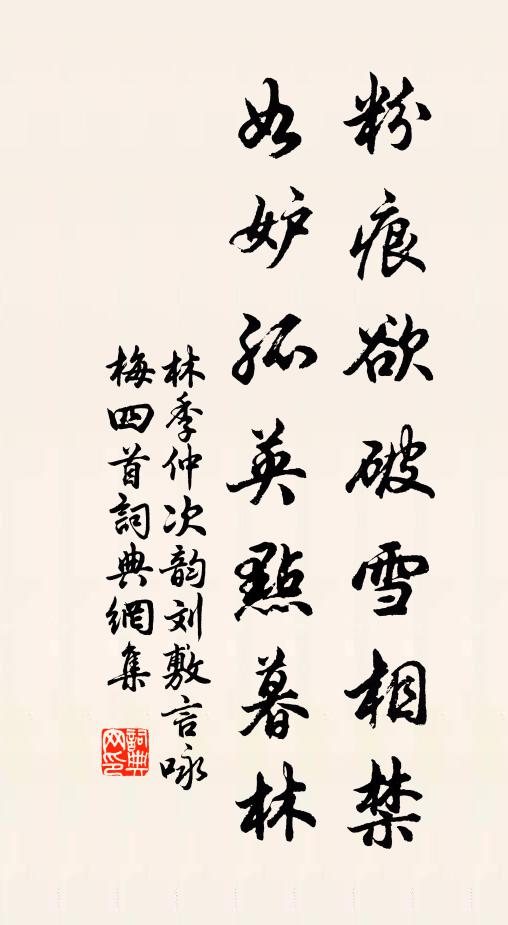 粉痕欲破雪相禁
如妒孤英點暮林
林季仲次韵刘敷言咏
梅四首詞典網集
詞典网印